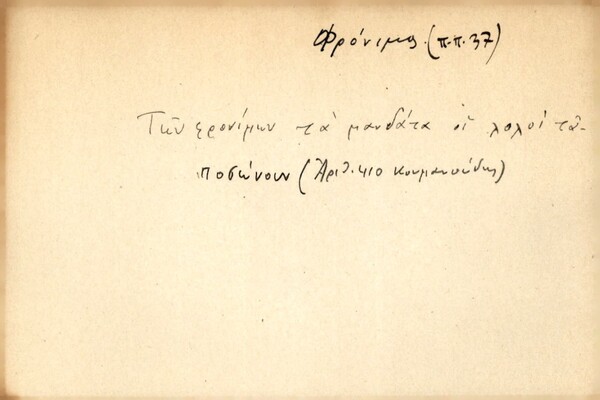 Φρόνιμος (π.π. 37)
Τῶν φρονίμων τὰ μαντάτα οἱ λωλοὶ τἀ-
ποσώνουν (Ἀριθ. 410 Κουμανούδης)